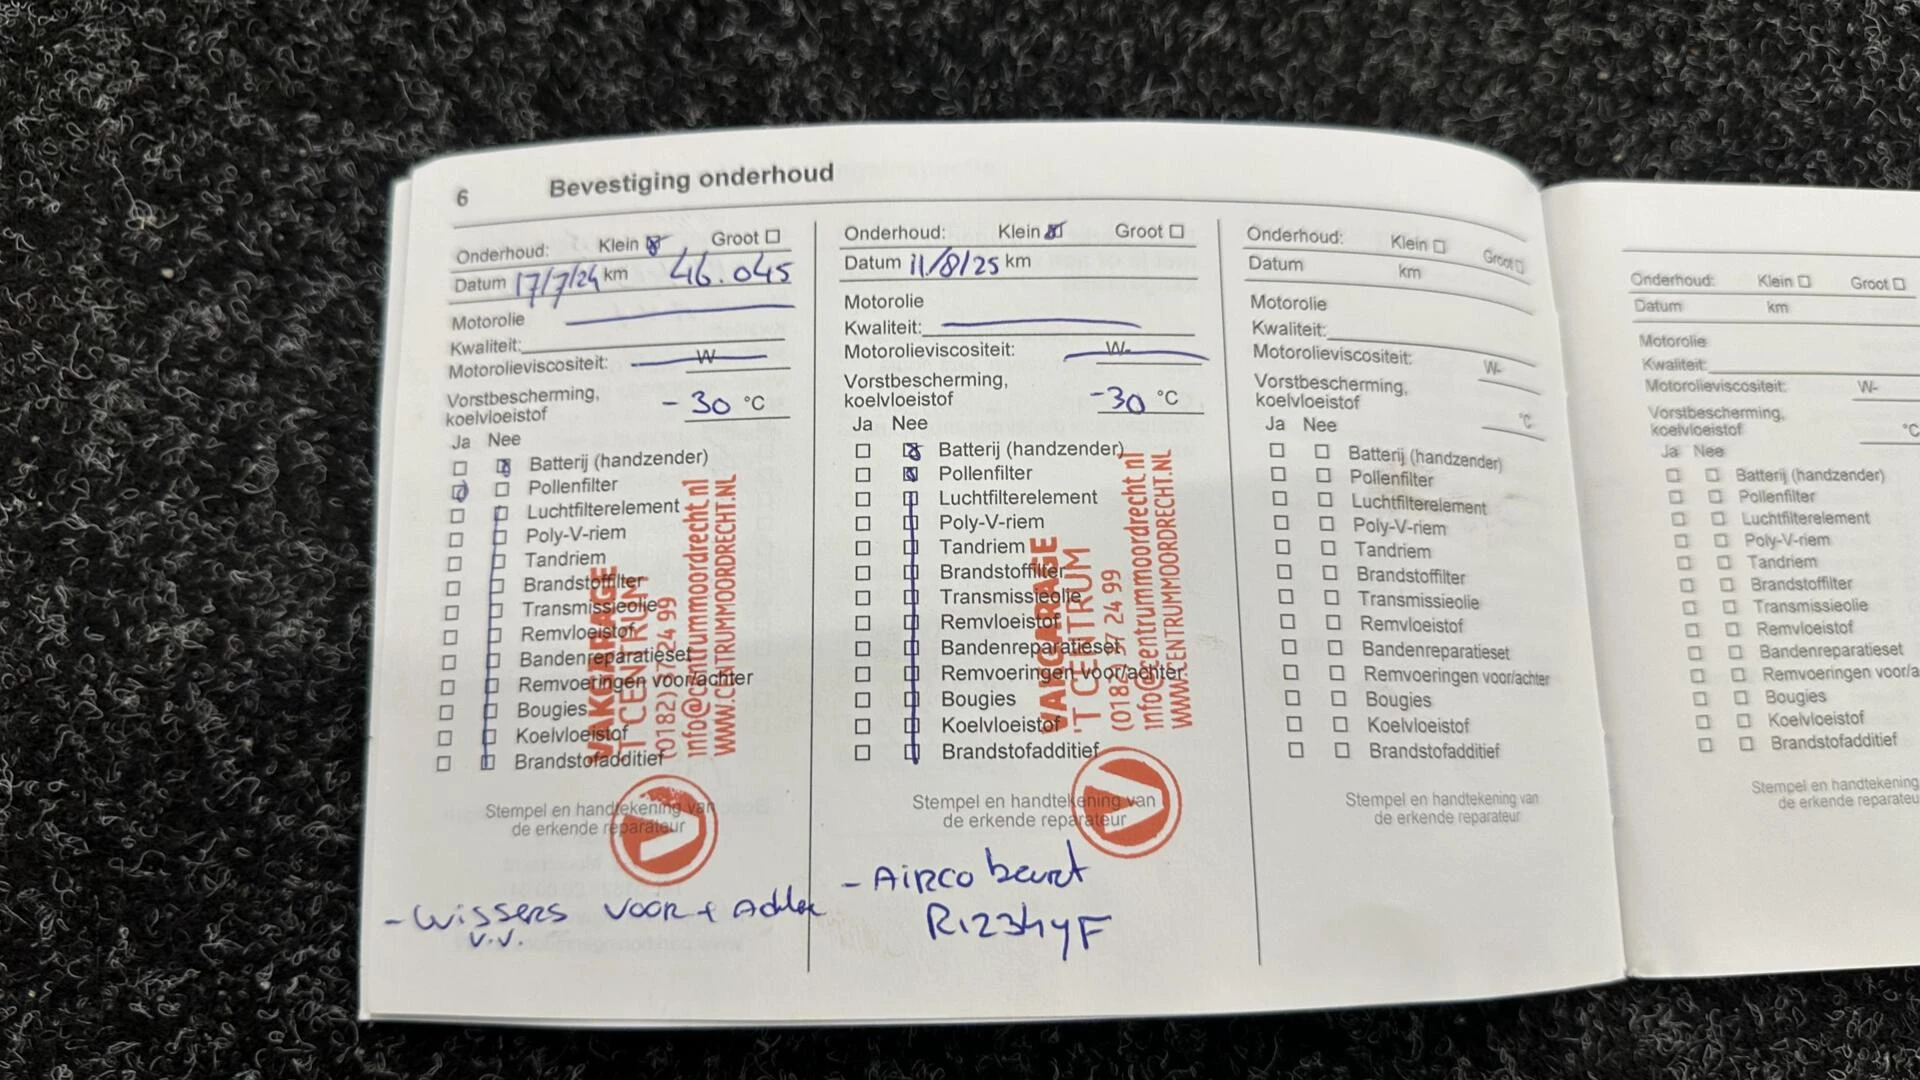 6 Bevestiging onderhoud
Onderhoud: Klein Groot
Datum 17/7/24 km 46.045
Motorolie
Kwaliteit:
Motorolieviscositeit: W
Vorstbescherming,
koelvloeistof -30 °C
Ja Nee
Batterij (handzender)
Pollenfilter
Luchtfilterelement
Poly-V-riem
Tandriem
Brandstoffilter
Transmissieolie
Remvloeistof
Bandenreparatieset
Remvoeringen voor/achter
Bougies
Koelvloeistof
Brandstofadditief
VAKGARAGE
'T CENTRUM
(0182) 37 24 99
info@centrummoordrecht.nl
WWW.CENTRUMMOORDRECHT.NL
Stempel en handtekening van
de erkende reparateur
- Wissers voor + Achter
v.v.
Onderhoud: Klein Groot
Datum 11/8/25 km
Motorolie
Kwaliteit:
Motorolieviscositeit: W-
Vorstbescherming,
koelvloeistof -30 °C
Ja Nee
Batterij (handzender)
Pollenfilter
Luchtfilterelement
Poly-V-riem
Tandriem
Brandstoffilter
Transmissieolie
Remvloeistof
Bandenreparatieset
Remvoeringen voor/achter
Bougies
Koelvloeistof
Brandstofadditief
VAKGARAGE
'T CENTRUM
(0182) 37 24 99
info@centrummoordrecht.nl
WWW.CENTRUMMOORDRECHT.NL
Stempel en handtekening van
de erkende reparateur
- Airco beurt
R1234yF
Onderhoud: Klein Groot
Datum km
Motorolie
Kwaliteit:
Motorolieviscositeit: W-
Vorstbescherming,
koelvloeistof °C
Ja Nee
Batterij (handzender)
Pollenfilter
Luchtfilterelement
Poly-V-riem
Tandriem
Brandstoffilter
Transmissieolie
Remvloeistof
Bandenreparatieset
Remvoeringen voor/achter
Bougies
Koelvloeistof
Brandstofadditief
Stempel en handtekening van
de erkende reparateur
Onderhoud: Klein Groot
Datum km
Motorolie
Kwaliteit:
Motorolieviscositeit: W-
Vorstbescherming,
koelvloeistof °C
Ja Nee
Batterij (handzender)
Pollenfilter
Luchtfilterelement
Poly-V-riem
Tandriem
Brandstoffilter
Transmissieolie
Remvloeistof
Bandenreparatieset
Remvoeringen voor/a
Bougies
Koelvloeistof
Brandstofadditief
Stempel en handtekening
de erkende reparateu